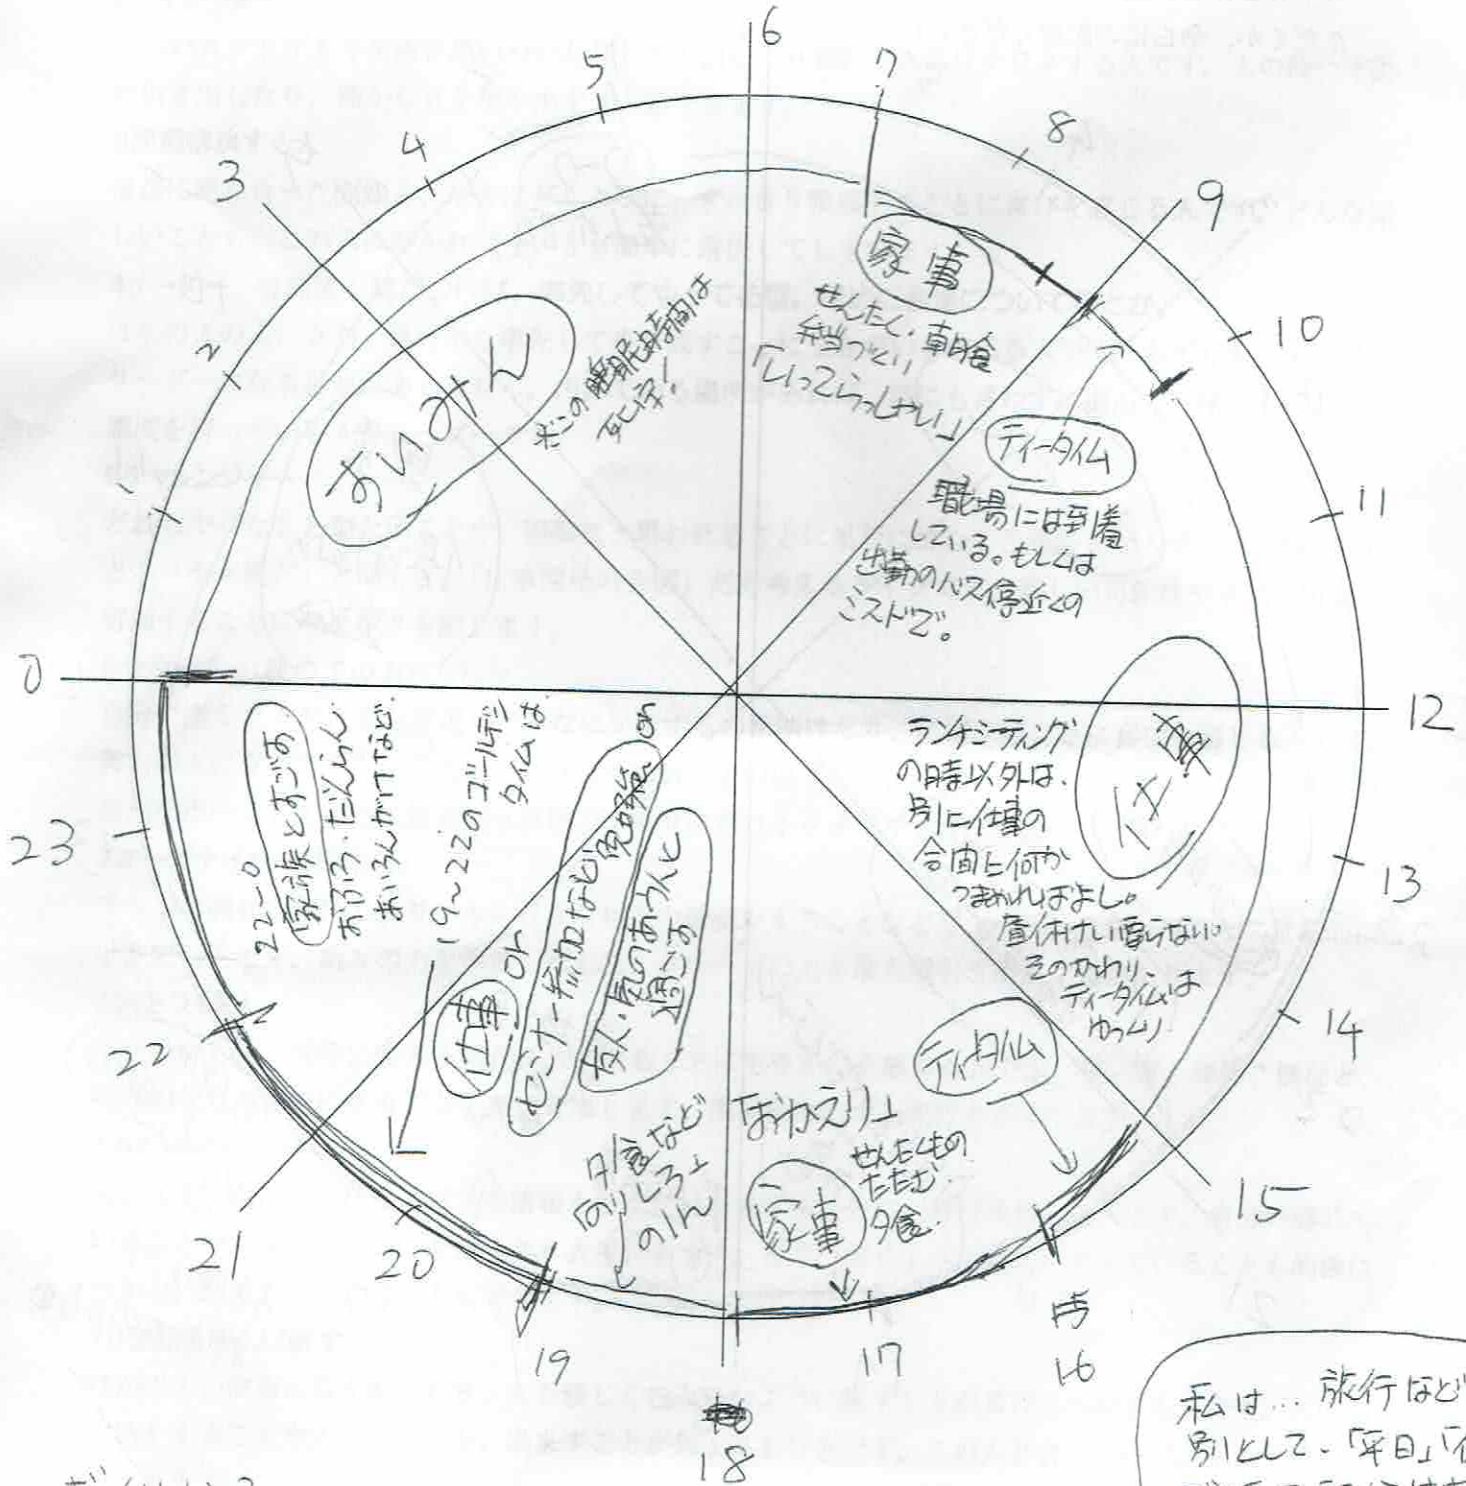 0
1
2
3
4
5
6
7
8
9
10
11
12
13
14
15
時
16
17
18
19
20
21
22
23
おやすみん
※この睡眠時間は
死に守!
家事
せんたく・朝食
弁当づくり
「いってらっしゃい」
ティータイム
職場には到着
している。もしくは
出勤のバス停近くの
ミスドで。
仕事
ランチミーティング
の時以外は、
別に仕事の
合間に何か
つまめればよし。
昼休けい要らない。
そのかわり、
ティータイムは
ゆっくり
ティータイム
「おかえり」
家事
せんたくもの
たたむ.
夕食.
夕食など
のりしろ
19〜22のゴールデン
タイムは
仕事 or
セミナー参加など
or
友人・気のあう人と
過ごす
22〜0
家族とすごす
おふろ・だんらん.
あいろんがけなど.
私は... 旅行など
別として、「平日」